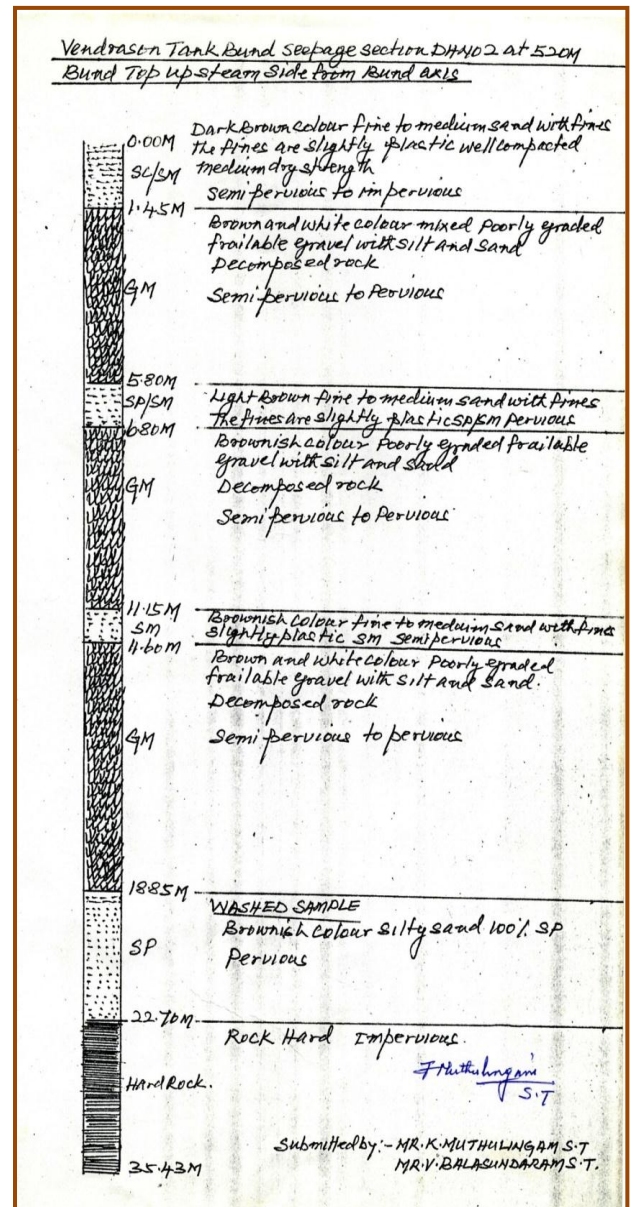 Vendrason Tank Bund seepage section DHNO2 at 520M
Bund Top upsteam side from Bund axis
0.00M
Dark Brown colour fine to medium sand with fines
the fines are slightly plastic well compacted
SC/SM
medium dry strength
semi pervious to impervious
1.45M
Brown and white colour mixed Poorly graded
frailable gravel with silt and sand
Decomposed rock
GM
Semi pervious to Pervious
5.80M
SP/SM
Light Brown fine to medium sand with fines
the fines are slightly plastic SP/SM Pervious
6.80M
Brownish colour Poorly graded frailable
gravel with silt and sand
GM
Decomposed rock
Semi pervious to Pervious
11.15M
SM
Brownish colour fine to meduim sand with fines
slightly plastic SM semipervious
4.60M
Brown and white colour Poorly graded
frailable gravel with silt and sand.
Decomposed rock
GM
Semi pervious to pervious
18.85M
WASHED SAMPLE
Brownish colour silty sand 100% SP
SP
Pervious
22.70M
Rock Hard Impervious.
Hard Rock.
S.T
Submitted by:- MR.K.MUTHULINGAM S.T
MR.V.BALASUNDARAM S.T.
35.43M